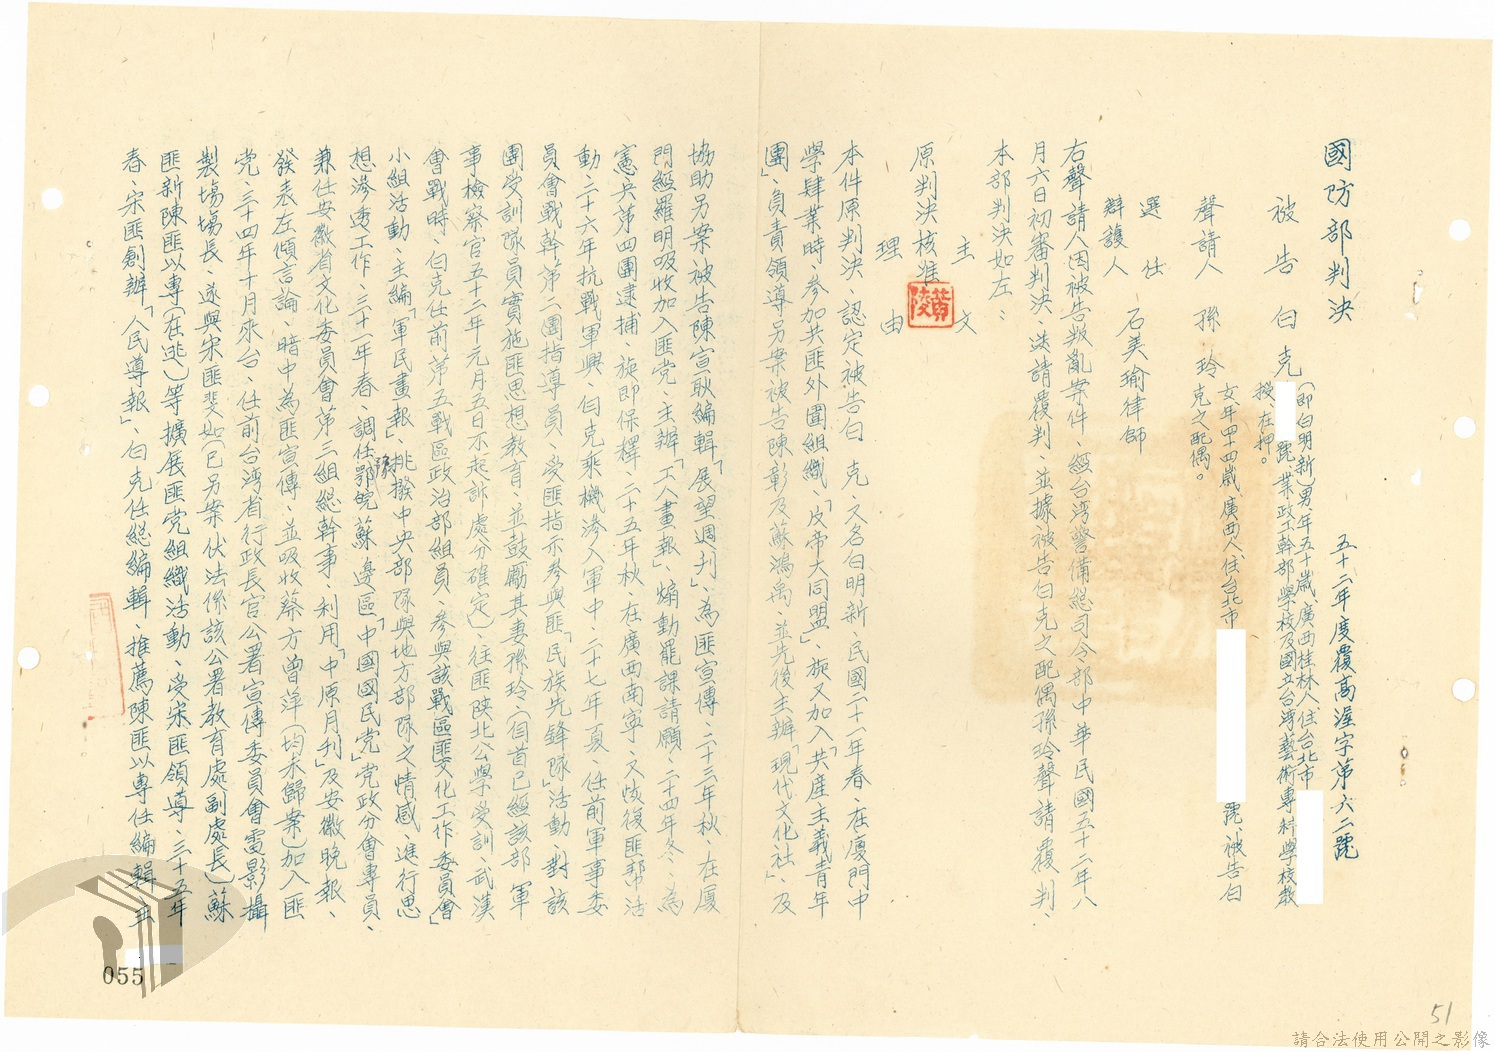 國防部判決
五十二年度覆高澄字第六二號
被告 白克(即白明新)男年五十歲、廣西桂林人、住台北市
號、業政工幹部學校及國立台湾藝術專科學校教
授、在押。
聲請人 孫玲 女、年四十四歲、廣西人、住台北市 號、被告白
克之配偶。
選任
辯護人 石美瑜律師
右聲請人因被告叛亂案件、經台湾警備総司令部中華民國五十二年八
月六日初審判決、送請覆判、並據被告白克之配偶孫玲聲請覆判、
本部判決如左：
主文
原判決核准
黃陵
理由
本件原判決、認定被告白克、又名白明新、民國二十一年春、在廈門中
學肆業時、參加共匪外圍組織、「反帝大同盟」、旋又加入「共產主義青年
團」、負責領導另案被告陳彰及蘇鴻禹、並先後主辦「現代文化社」、及
協助另案被告陳宣耿編輯「展望週刊」、為匪宣傳、二十三年秋、在厦
門經羅明吸收加入匪党、主辦「工人畫報」、煽動罷課請願、二十四年冬、為
憲兵第四團逮捕、旋即保釋、二十五年秋、在廣西南寧、又恢復匪幫活
動、二十六年抗戰軍興、白克乘機滲入軍中、二十七年夏、任前軍事委
員會戰幹第二團指導員、受匪指示參與匪「民族先鋒隊」活動、對該
團受訓隊員實施匪思想教育、並鼓勵其妻孫玲、(自首已經該部軍
事檢察官五十二年元月五日不起訴處分確定)、往匪陝北公學受訓、武漢
會戰時、白克任前第五戰區政治部組員、參與該戰區匪「文化工作委員會」
小組活動、主編「軍民畫報」、挑撥中央部隊與地方部隊之情感、進行思
想滲透工作、三十一年春、調任鄂豫皖蘇邊區「中國國民党」党政分會專員、
兼任安徽省文化委員會第三組総幹事、利用「中原月刊」及安徽晚報、
發表左傾言論、暗中為匪宣傳、並吸收蔡方曾萍(均未歸案)加入匪
党、三十四年十月來台、任前台湾省行政長官公署宣傳委員會電影攝
製場場長、遂與宋匪斐如(已另案伏法係該公署教育處副處長)蘇
匪新陳匪以專(在逃)等擴展匪党組織活動、受宋匪領導、三十五年
春、宋匪創辦「人民導報」、白克任総編輯、推薦陳匪以專任編輯、五
055
51
請合法使用公開之影像